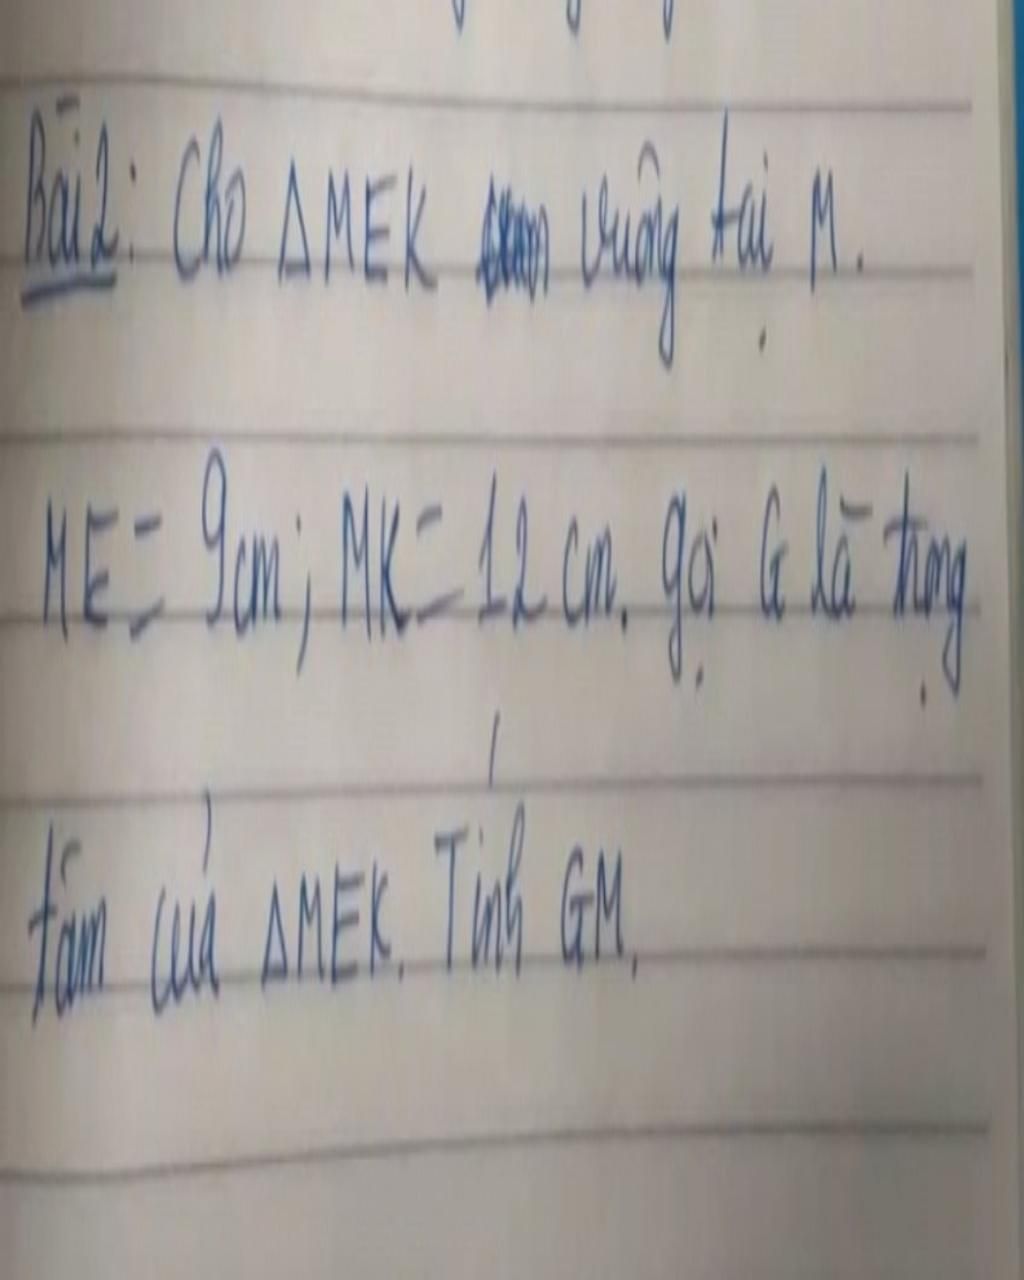 Bài 2: Cho ΔMEK vuông tại M.
ME = 9cm; MK = 12 cm. gọi G là trọng
tâm của ΔMEK. Tính GM.